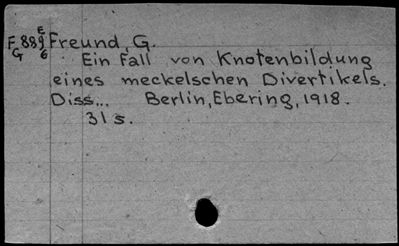 E
F.889 Freund, G.
G 6
Ein Fall von Knotenbildung
eines meckelschen Divertikels.
Diss... Berlin, Ebering, 1918.
31 s.